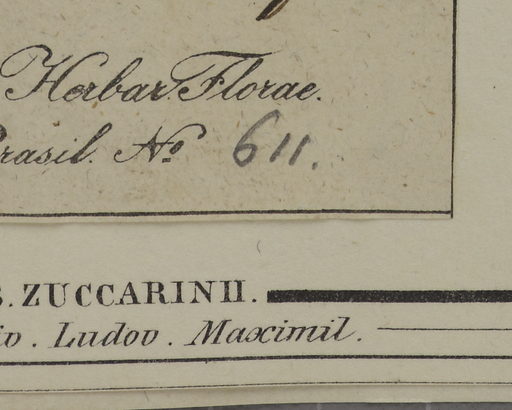 Herbar. Florae.
Brasil. No. 611.
S. ZUCCARINII.
iv. Ludov. Maximil.